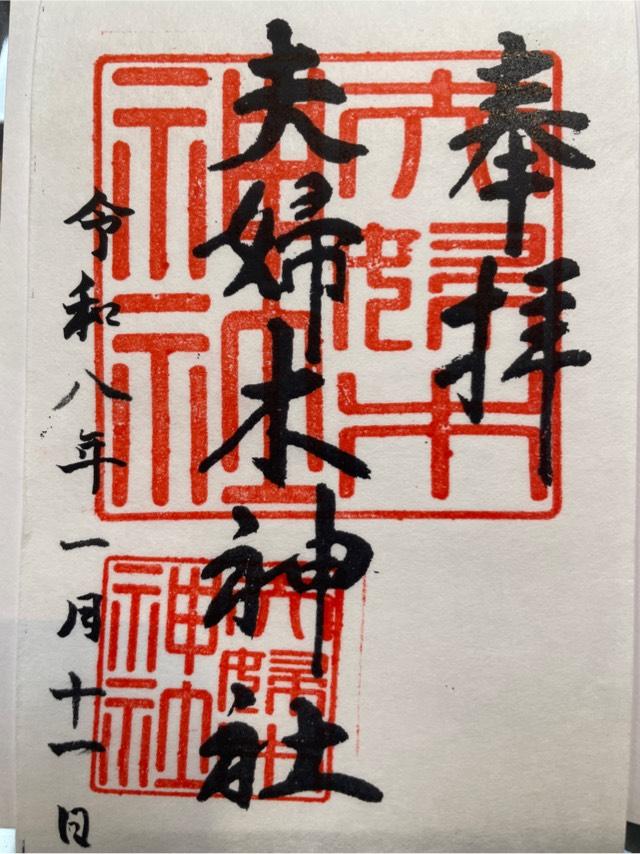 奉拝
夫婦木神社
令和八年一月十一日
夫婦木
神社
夫婦木
神社